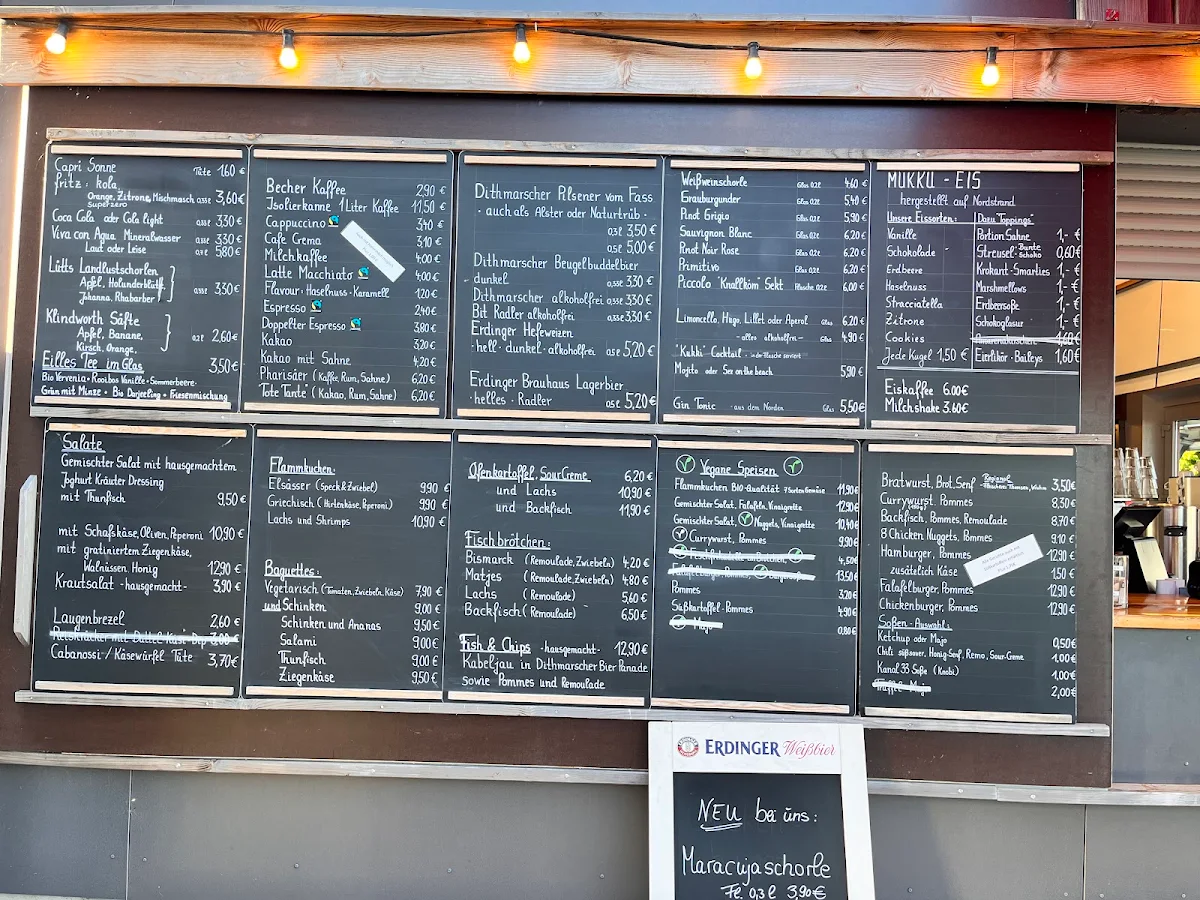 Capri Sonne Tüte 1.60 €
fritz: kola,
Orange, Zitrone, Mischmasch 0,33ℓ 3,60€
Superzero
Coca Cola oder Cola light 0,33ℓ 3,30 €
Viva con Agua Mineralwasser 0,33ℓ 3.30 €
Laut oder Leise 0,7ℓ 5,80€
Lütts Landlustschorlen
Apfel, Holunderblüte, 0,33ℓ 3,30€
Johanna, Rhabarber
Klindworth Säfte
Apfel, Banane, 0.2ℓ 2,60€
Kirsch, Orange,
Eilles Tee im Glas 3,50€
Bio Vervenia • Rooibos Vanille • Sommerbeere •
Grün mit Minze • Bio Darjeeling • Friesenmischung
Becher Kaffee 2,90 €
Isolierkanne 1 Liter Kaffee 11,50 €
Cappuccino 3,40 €
Cafe Crema 3,10 €
Milchkaffee 4,00 €
Latte Macchiato 4,00€
Flavour • Haselnuss • Karamell 1,20 €
Espresso 2,40€
Doppelter Espresso 3,80 €
Kakao 3,20 €
Kakao mit Sahne 4,20€
Pharisäer (Kaffee, Rum, Sahne) 6,20 €
"Tote Tante" (Kakao, Rum, Sahne) 6,20 €
Dithmarscher Pilsener vom Fass
• auch als Alster oder Naturtrüb •
0.3ℓ 3,50€
0.5ℓ 5,00 €
Dithmarscher Beugelbuddelbier
dunkel 0,33ℓ 3,30 €
Dithmarscher alkoholfrei 0.33ℓ 3,30 €
Bit Radler alkoholfrei 0,33ℓ 3,30€
Erdinger Hefeweizen
• hell • dunkel • alkoholfrei 0.5ℓ 5,20 €
Erdinger Brauhaus Lagerbier
• helles • Radler 0.5ℓ 5,20 €
Weißweinschorle Glas 0.2ℓ 4,60 €
Grauburgunder Glas 0.2ℓ 5,40 €
Pinot Grigio Glas 0.2ℓ 5,90 €
Sauvignon Blanc Glas 0.2ℓ 6.20 €
Pinot Noir Rose Glas 0.2ℓ 6.20 €
Primitivo Glas 0.2ℓ 6.20 €
Piccolo "Knallköm" Sekt Flasche 0.2ℓ 6,00 €
Limoncello, Hugo, Lillet oder Aperol Glas 6.20 €
- alles alkoholfrei - Glas 4,90 €
"Kukki" Cocktail - in der Flasche serviert
Mojito oder Sex on the beach 5,90 €
Gin Tonic - aus dem Norden Glas 5,50€
MUKKU - EIS
hergestellt auf Nordstrand
Unsere Eissorten: "Dazu Toppings"
Vanille Portion Sahne 1,- €
Schokolade Streusel • Bunte • Schoko 0,60€
Erdbeere Krokant • Smarties 1,- €
Haselnuss Marshmellows 1,- €
Stracciatella Erdbersoße 1,- €
Zitrone Schokoglasur 1,- €
Cookies 1,60€
Jede Kugel 1,50 € Eierlikör • Baileys 1,60€
Eiskaffee 6.00€
Milchshake 3.60€
Salate
Gemischter Salat mit hausgemachtem
Joghurt Kräuter Dressing
mit Thunfisch 9,50€
mit Schafskäse, Oliven, Peperoni 10,90 €
mit gratiniertem Ziegenkäse,
Walnüssen, Honig 12,90 €
Krautsalat -hausgemacht- 3,90 €
Laugenbrezel 2,60 €
Reiscracker mit Dattel Käse Dip 3,00 €
Cabanossi / Käsewürfel Tüte 3,70€
Flammkuchen:
Elsässer (Speck & Zwiebel) 9,90 €
Griechisch (Hirtenkäse, Peperoni) 9,90 €
Lachs und Shrimps 10,90 €
Baguettes:
Vegetarisch (Tomaten, Zwiebeln, Käse) 7,90 €
und Schinken 9,00 €
Schinken und Ananas 9,50€
Salami 9,00€
Thunfisch 9,00€
Ziegenkäse 9,50€
Ofenkartoffel, SourCreme 6,20 €
und Lachs 10,90 €
und Backfisch 11,90 €
Fischbrötchen:
Bismarck (Remoulade, Zwiebeln) 4,20 €
Matjes (Remoulade, Zwiebeln) 4,80 €
Lachs (Remoulade) 5,60€
Backfisch (Remoulade) 6,50 €
Fish & Chips -hausgemacht- 12,90€
Kabeljau in Dithmarscher Bier Panade
sowie Pommes und Remoulade
Vegane Speisen
Flammkuchen BIO-Qualität 7 Sorten Gemüse 11,90€
Gemischter Salat, Falafeln, Vinaigrette 12,90€
Gemischter Salat, Nuggets, Vinaigrette 10,40€
Currywurst, Pommes 9,90€
4,50€
13,50€
Pommes 3,20€
Süßkartoffel-Pommes 4,90€
Majo 0,80€
Bratwurst, Brot, Senf Regional 3,50€
Currywurst, Pommes 8,30€
Backfisch, Pommes, Remoulade 8.70€
8 Chicken Nuggets, Pommes 9.10 €
Hamburger, Pommes 12,90 €
zusätzlich Käse 1,50 €
Falafelburger, Pommes 12,90 €
Chickenburger, Pommes 12,90€
Soßen - Auswahl:
Ketchup oder Majo 0,50€
Chili süßsauer, Honig-Senf, Remo, Sour-Creme 1.00€
Kanal 33 Soße (Knobi) 1,00€
Trüffel - Majo 2,00€
ERDINGER Weißbier
NEU bei uns:
Maracujaschorle
Fl. 0,3 ℓ 3,90€